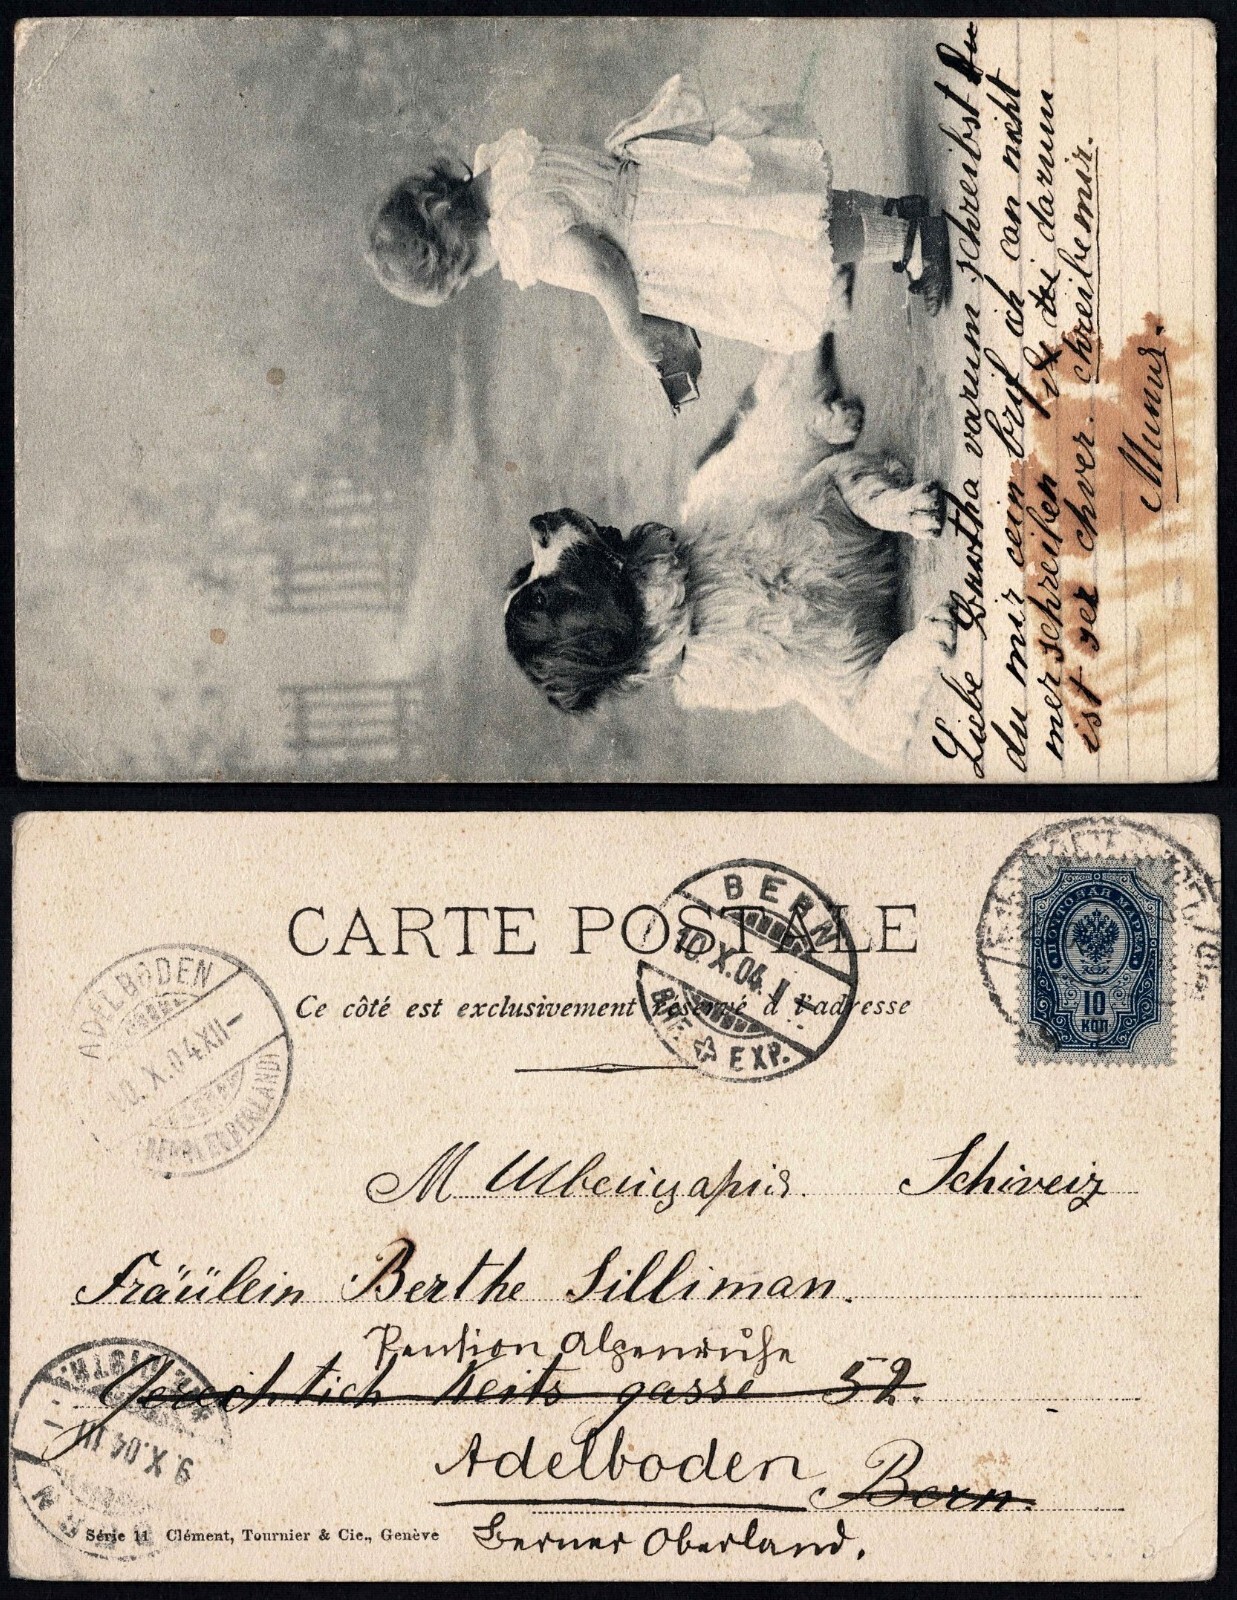 Liebe Bertha varum schreibst du
du mir cein brif ich can nicht
mer schreiben darum
ist ser chver. chreibe mir.
Munus.
CARTE POSTALE
Ce côté est exclusivement réservé à l'adresse
BERN
10.X.04.
BRF. EXP.
ADELBODEN
10.X.04 XII–
ПОЧТОВАЯ МАРКА
10
КОП
М Швейцарія. Schweiz
Fräülein Berthe Silliman.
Pension Alpenruhe
Gerechtich Keits gasse 52.
Adelboden Bern.
Berner Oberland.
BERN
9.X.04 III
Série 11 Clément, Tournier & Cie., Genève